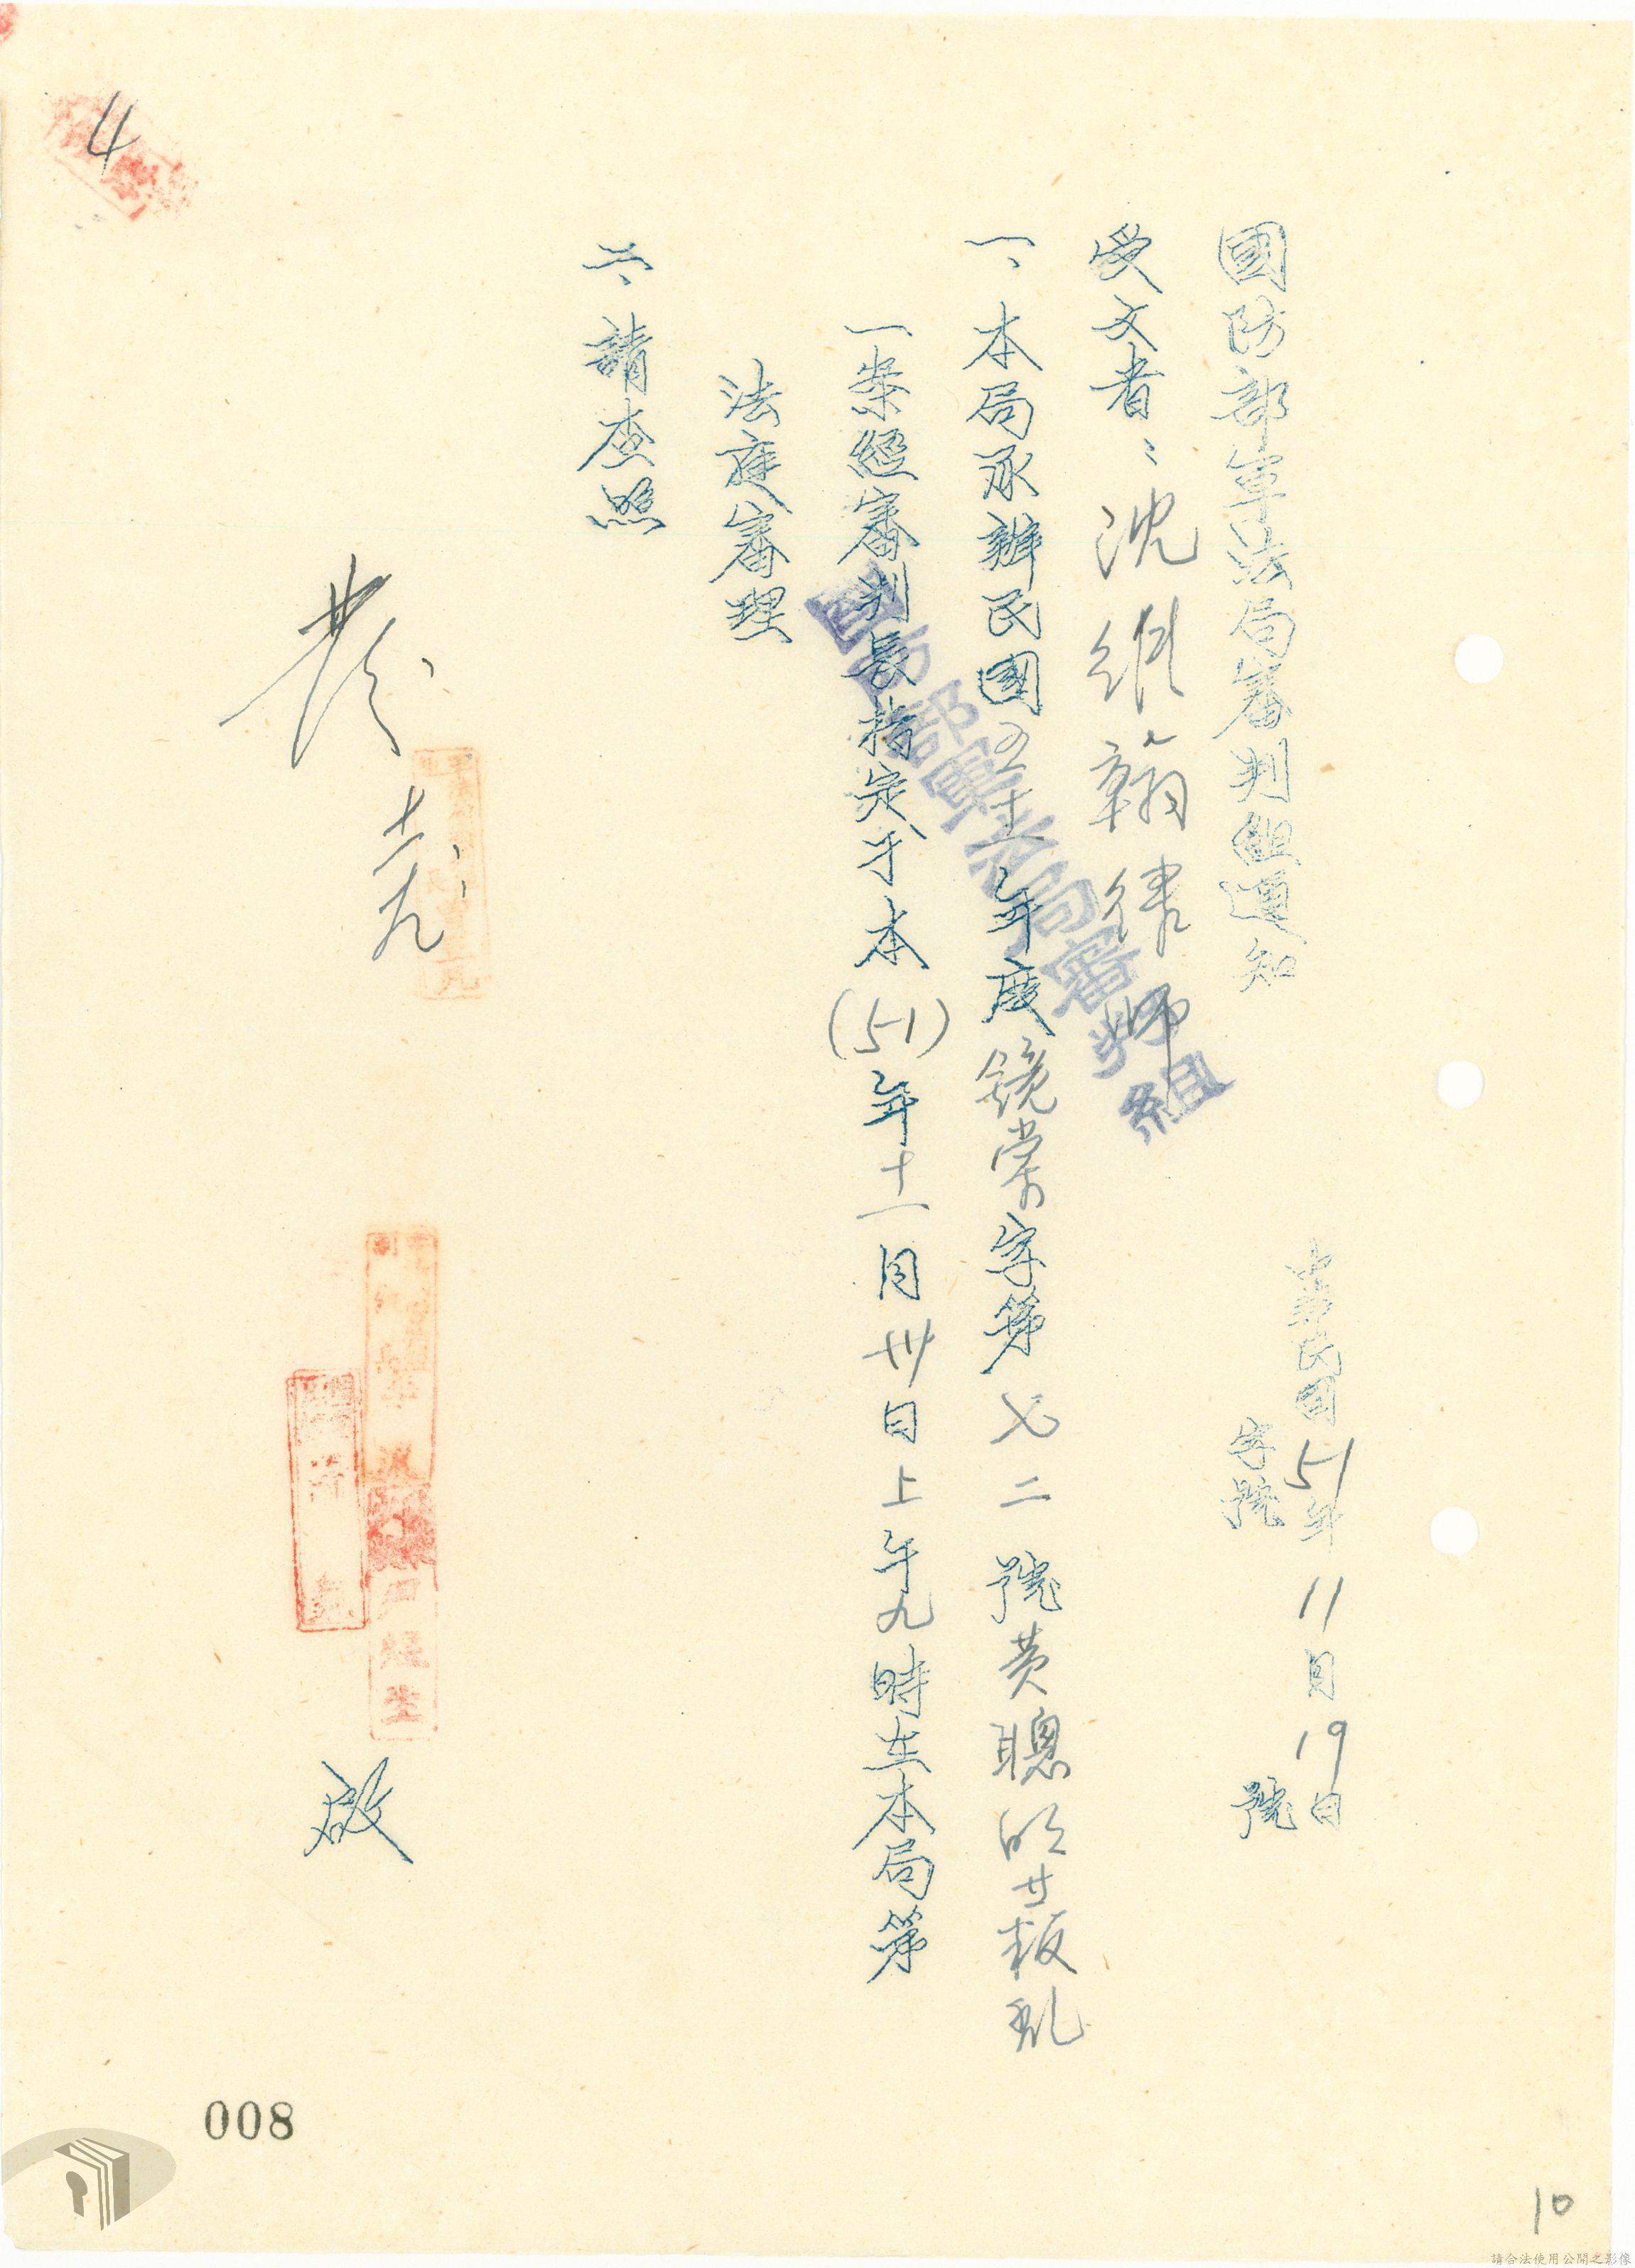 國防部軍法局審判組通知
中華民國51年11月19日
字號 號
受文者:沈維翰律師
國防部軍法局審判組
一、本局承辦民國五十一年度鏡棠字第七二號黃聰明廿叛乱
一案經審判長指定于本(51)年十一月卅日上午九時在本局第
法庭審理
二、請查照
十一九
啟
4
008
10
請合法使用公開之影像